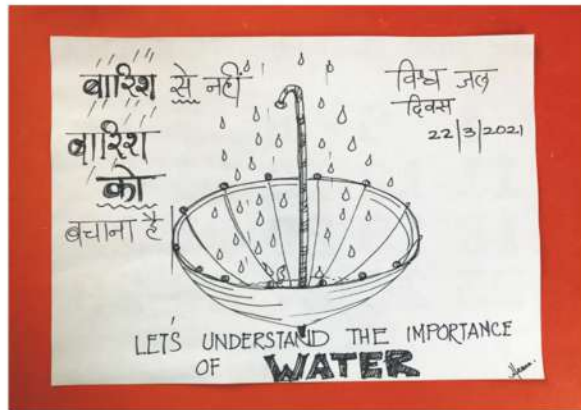 बारिश से नहीं
बारिश
को
बचाना है
विश्व जल
दिवस
22/3/2021
LET'S UNDERSTAND THE IMPORTANCE
OF WATER